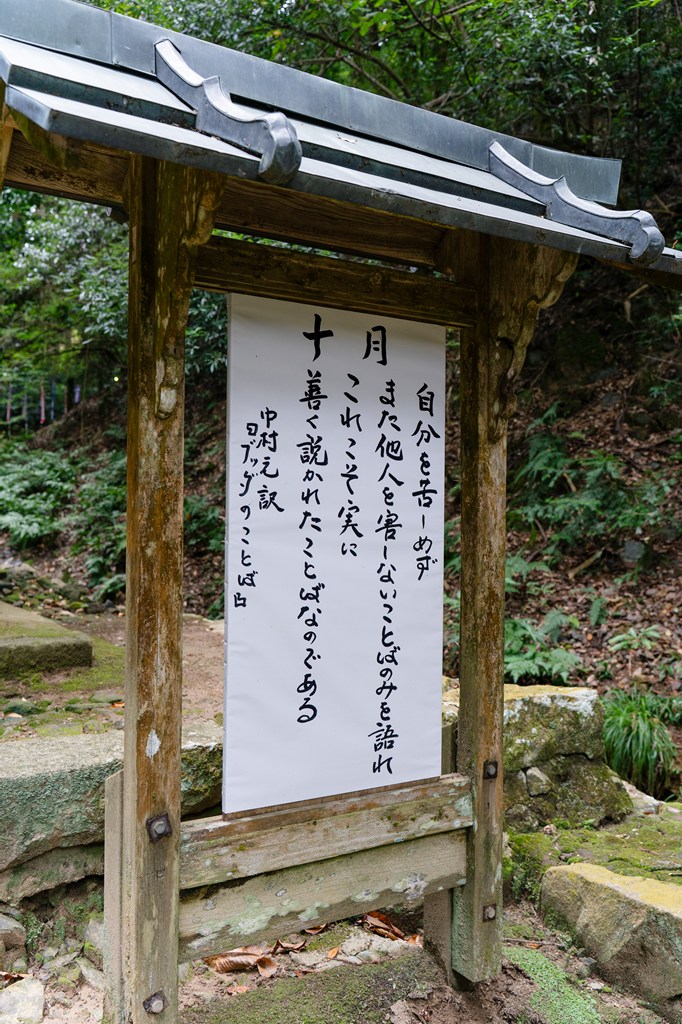 十月
自分を苦しめず
また他人を害しないことばのみを語れ
これこそ実に
善く説かれたことばなのである
中村元訳
『ブッダのことば』